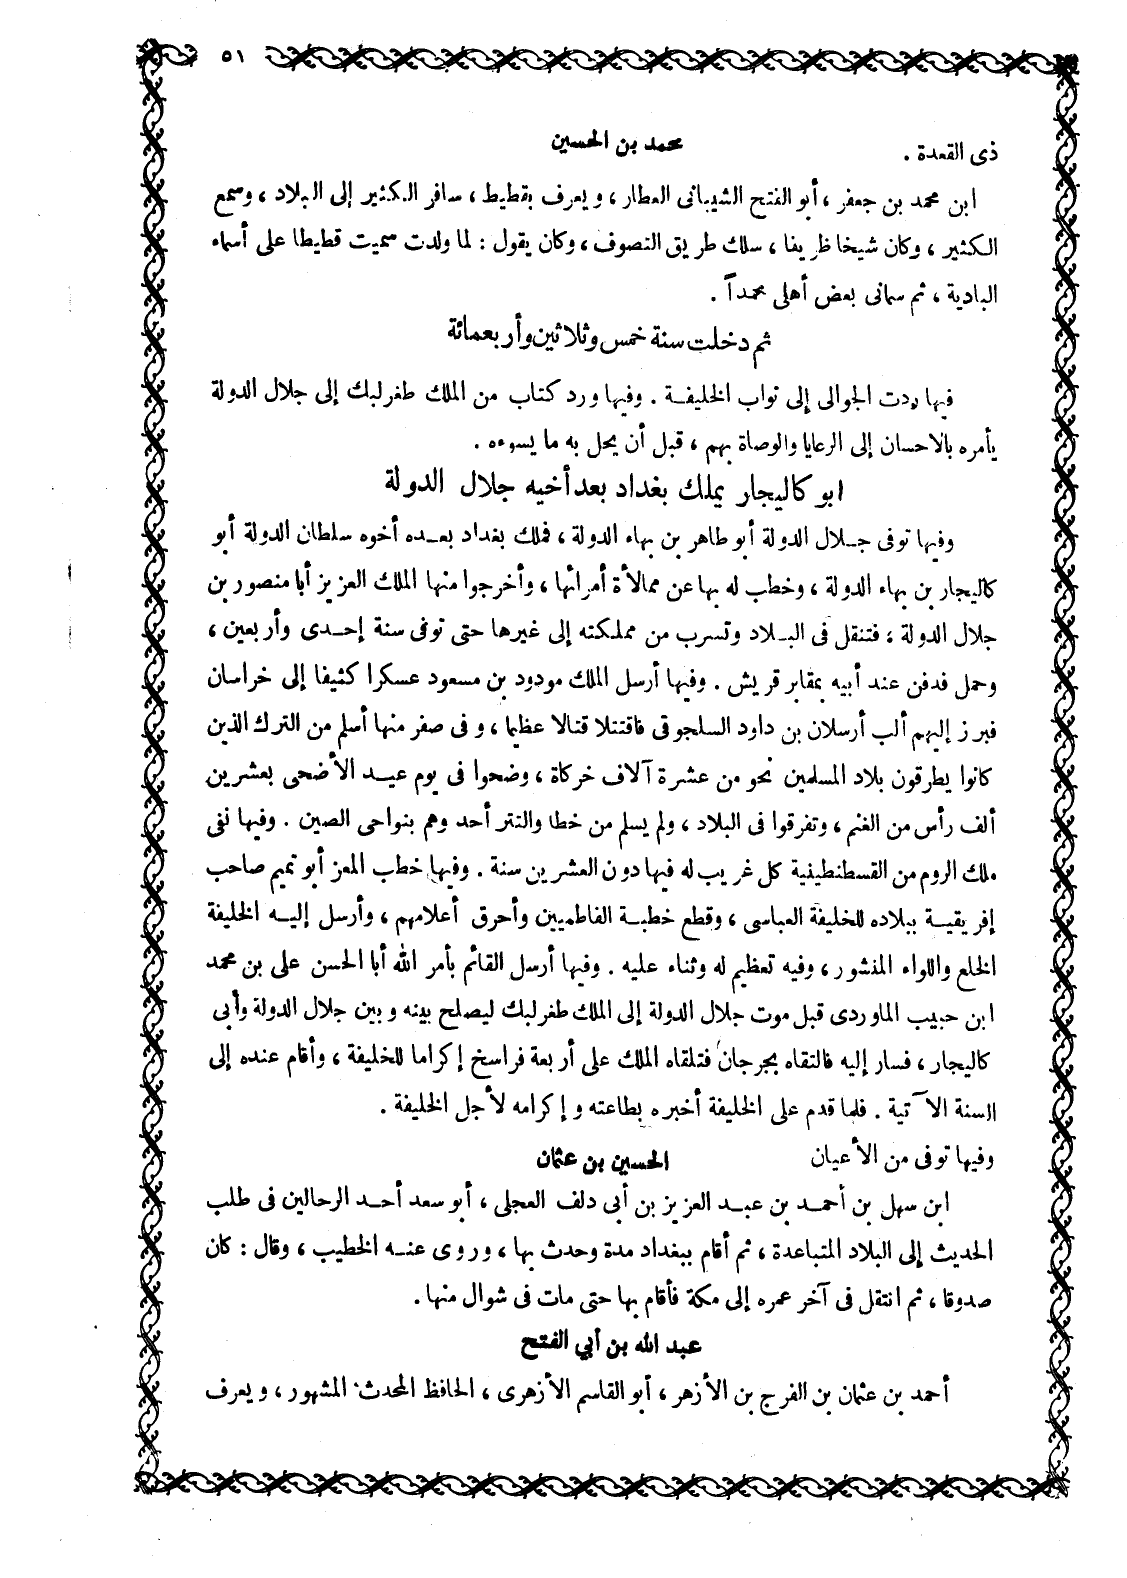 ٥١
ذى القعدة . محمد بن الحسين
ابن محمد بن جعفر ، أبو الفتح الشيبانى العطار ، ويعرف بقطيط ، سافر الكثير إلى البلاد ، وسمع
الكثير ، وكان شيخا ظريفا ، سلك طريق التصوف ، وكان يقول : لما ولدت سميت قطيطا على أسماء
البادية ، ثم سمانى بعض أهلى محمداً .
ثم دخلت سنة خمس وثلاثين وأربعمائة
فيها ردت الجوالى إلى نواب الخليفة . وفيها ورد كتاب من الملك طغرلبك إلى جلال الدولة
يأمره بالاحسان إلى الرعايا والوصاة بهم ، قبل أن يحل به ما يسوءه .
ابو كاليجار يملك بغداد بعد أخيه جلال الدولة
وفيها توفى جلال الدولة أبو طاهر بن بهاء الدولة ، فملك بغداد بعده أخوه سلطان الدولة أبو
كاليجار بن بهاء الدولة ، وخطب له بها عن ممالأة أمرائها ، وأخرجوا منها الملك العزيز أبا منصور بن
جلال الدولة ، فتنقل فى البلاد وتسرب من مملكته إلى غيرها حتى توفى سنة إحدى وأربعين ،
وحمل فدفن عند أبيه بمقابر قريش . وفيها أرسل الملك مودود بن مسعود عسكرا كثيفا إلى خراسان
فبرز إليهم ألب أرسلان بن داود السلجوقى فاقتتلا قتالا عظيما ، وفى صفر منها أسلم من الترك الذين
كانوا يطرقون بلاد المسلمين نحو من عشرة آلاف خركاة ، وضحوا فى يوم عيد الأضحى بعشرين
ألف رأس من الغنم ، وتفرقوا فى البلاد ، ولم يسلم من خطا والتتر أحد وهم بنواحى الصين . وفيها نفى
ملك الروم من القسطنطينية كل غريب له فيها دون العشرين سنة . وفيها خطب المعز أبو تميم صاحب
إفريقية ببلاده للخليفة العباسى ، وقطع خطبة الفاطميين وأحرق أعلامهم ، وأرسل إليه الخليفة
الخلع واللواء المنشور ، وفيه تعظيم له وثناء عليه . وفيها أرسل القائم بأمر الله أبا الحسن على بن محمد
ابن حبيب الماوردى قبل موت جلال الدولة إلى الملك طغرلبك ليصلح بينه وبين جلال الدولة وأبى
كاليجار ، فسار إليه فالتقاه بجرجان فتلقاه الملك على أربعة فراسخ إكراما للخليفة ، وأقام عنده إلى
السنة الآتية . فلما قدم على الخليفة أخبره بطاعته وإكرامه لأجل الخليفة .
وفيها توفى من الأعيان الحسين بن عثمان
ابن سهل بن أحمد بن عبد العزيز بن أبى دلف العجلى ، أبو سعد أحد الرحالين فى طلب
الحديث إلى البلاد المتباعدة ، ثم أقام ببغداد مدة وحدث بها ، وروى عنه الخطيب ، وقال : كان
صدوقا ، ثم انتقل فى آخر عمره إلى مكة فأقام بها حتى مات فى شوال منها .
عبد الله بن أبي الفتح
أحمد بن عثمان بن الفرج بن الأزهر ، أبو القاسم الأزهرى ، الحافظ المحدث المشهور ، ويعرف